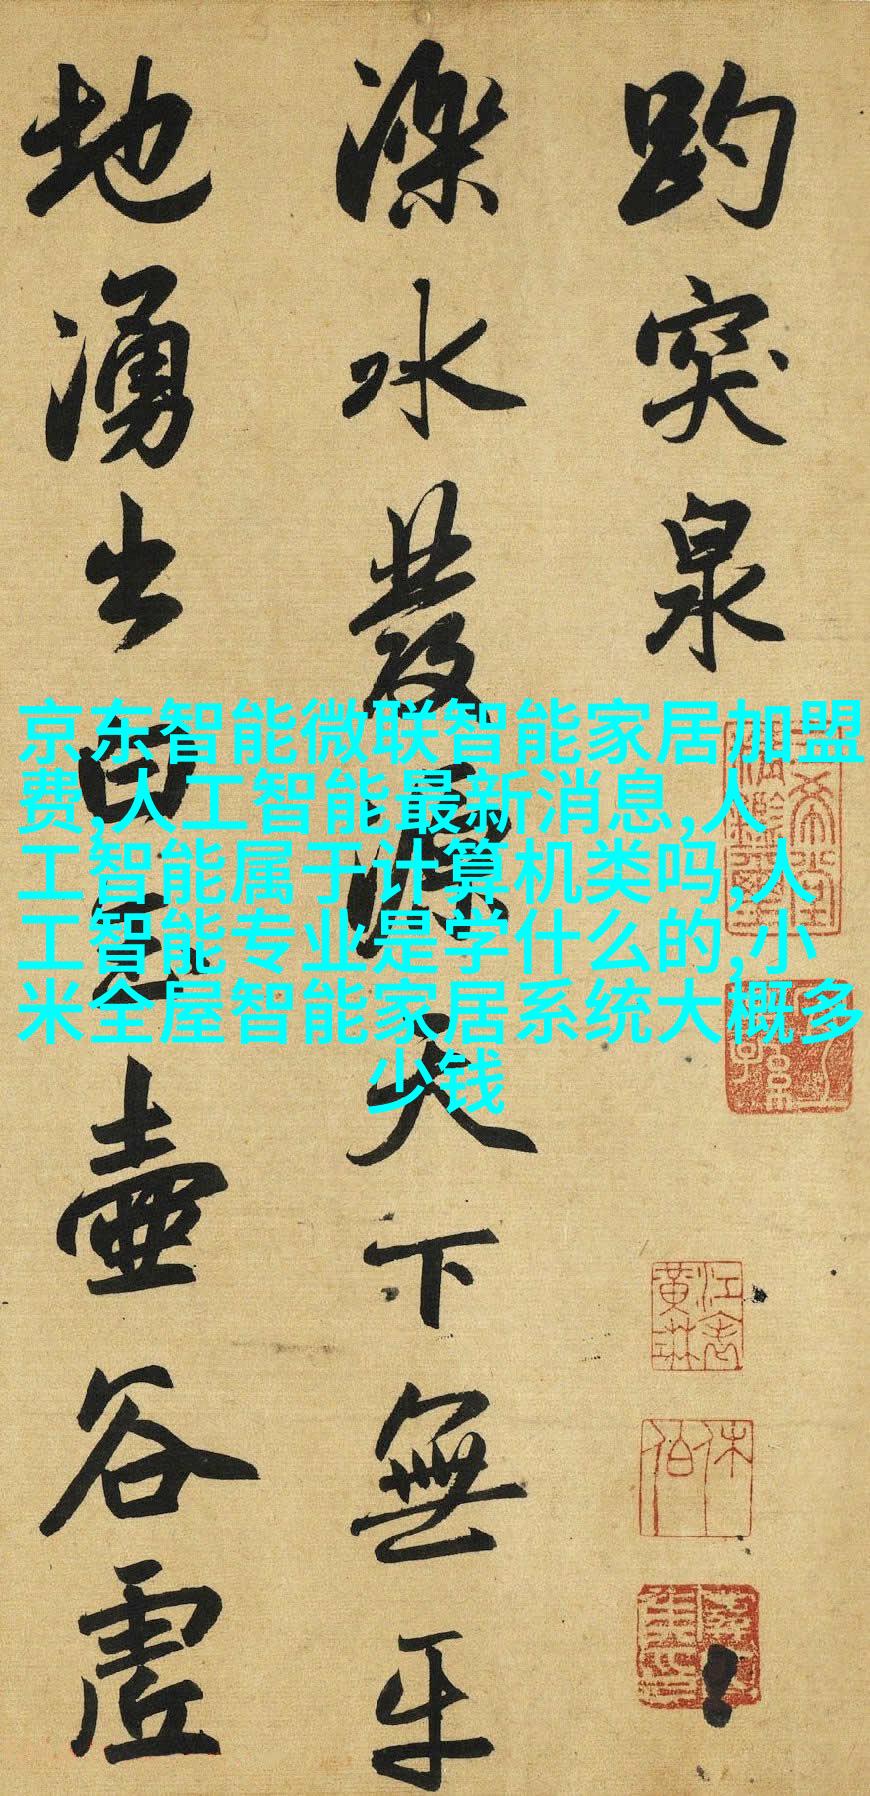 趵突泉
濼水發源天下無平
地湧出白玉壺谷虛
京东智能微联智能家居加盟
费,人工智能最新消息,人
工智能属于计算机类吗,人
工智能专业是学什么的,小
米全屋智能家居系统大概多
少钱
江表
黃琳
休伯